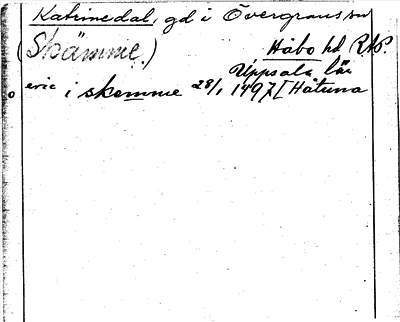 Katrinedal, gd i Övergrans sn
(Skämme.) Håbo hd RAP.
Uppsala län
eric i skemme 28/1 1497 [Håtuna